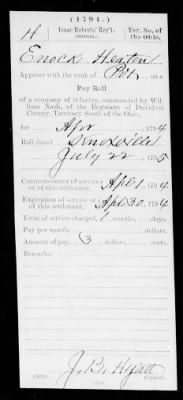 (1794.)
H Isaac Roberts' Reg't. Ter. So. of
(MILITIA.) the Ohio.
Enock Heaton
Appears with the rank of Pvt. on a
Pay Roll
of a company of infantry, commanded by Wil-
liam Nash, of the Regiment of Davidson
County, Territory South of the Ohio,
for Apr 1794
Roll dated Knoxville
July 22 1795
Commencement of service
or of this settlement, Apl 1 1794
Expiration of service
or of this settlement, Apl 30, 1794
Term of service charged, 1 months, days.
Pay per month, dollars
Amount of pay, 3 dollars, cents.
Remarks:
J. B. Hyatt
Copyist.